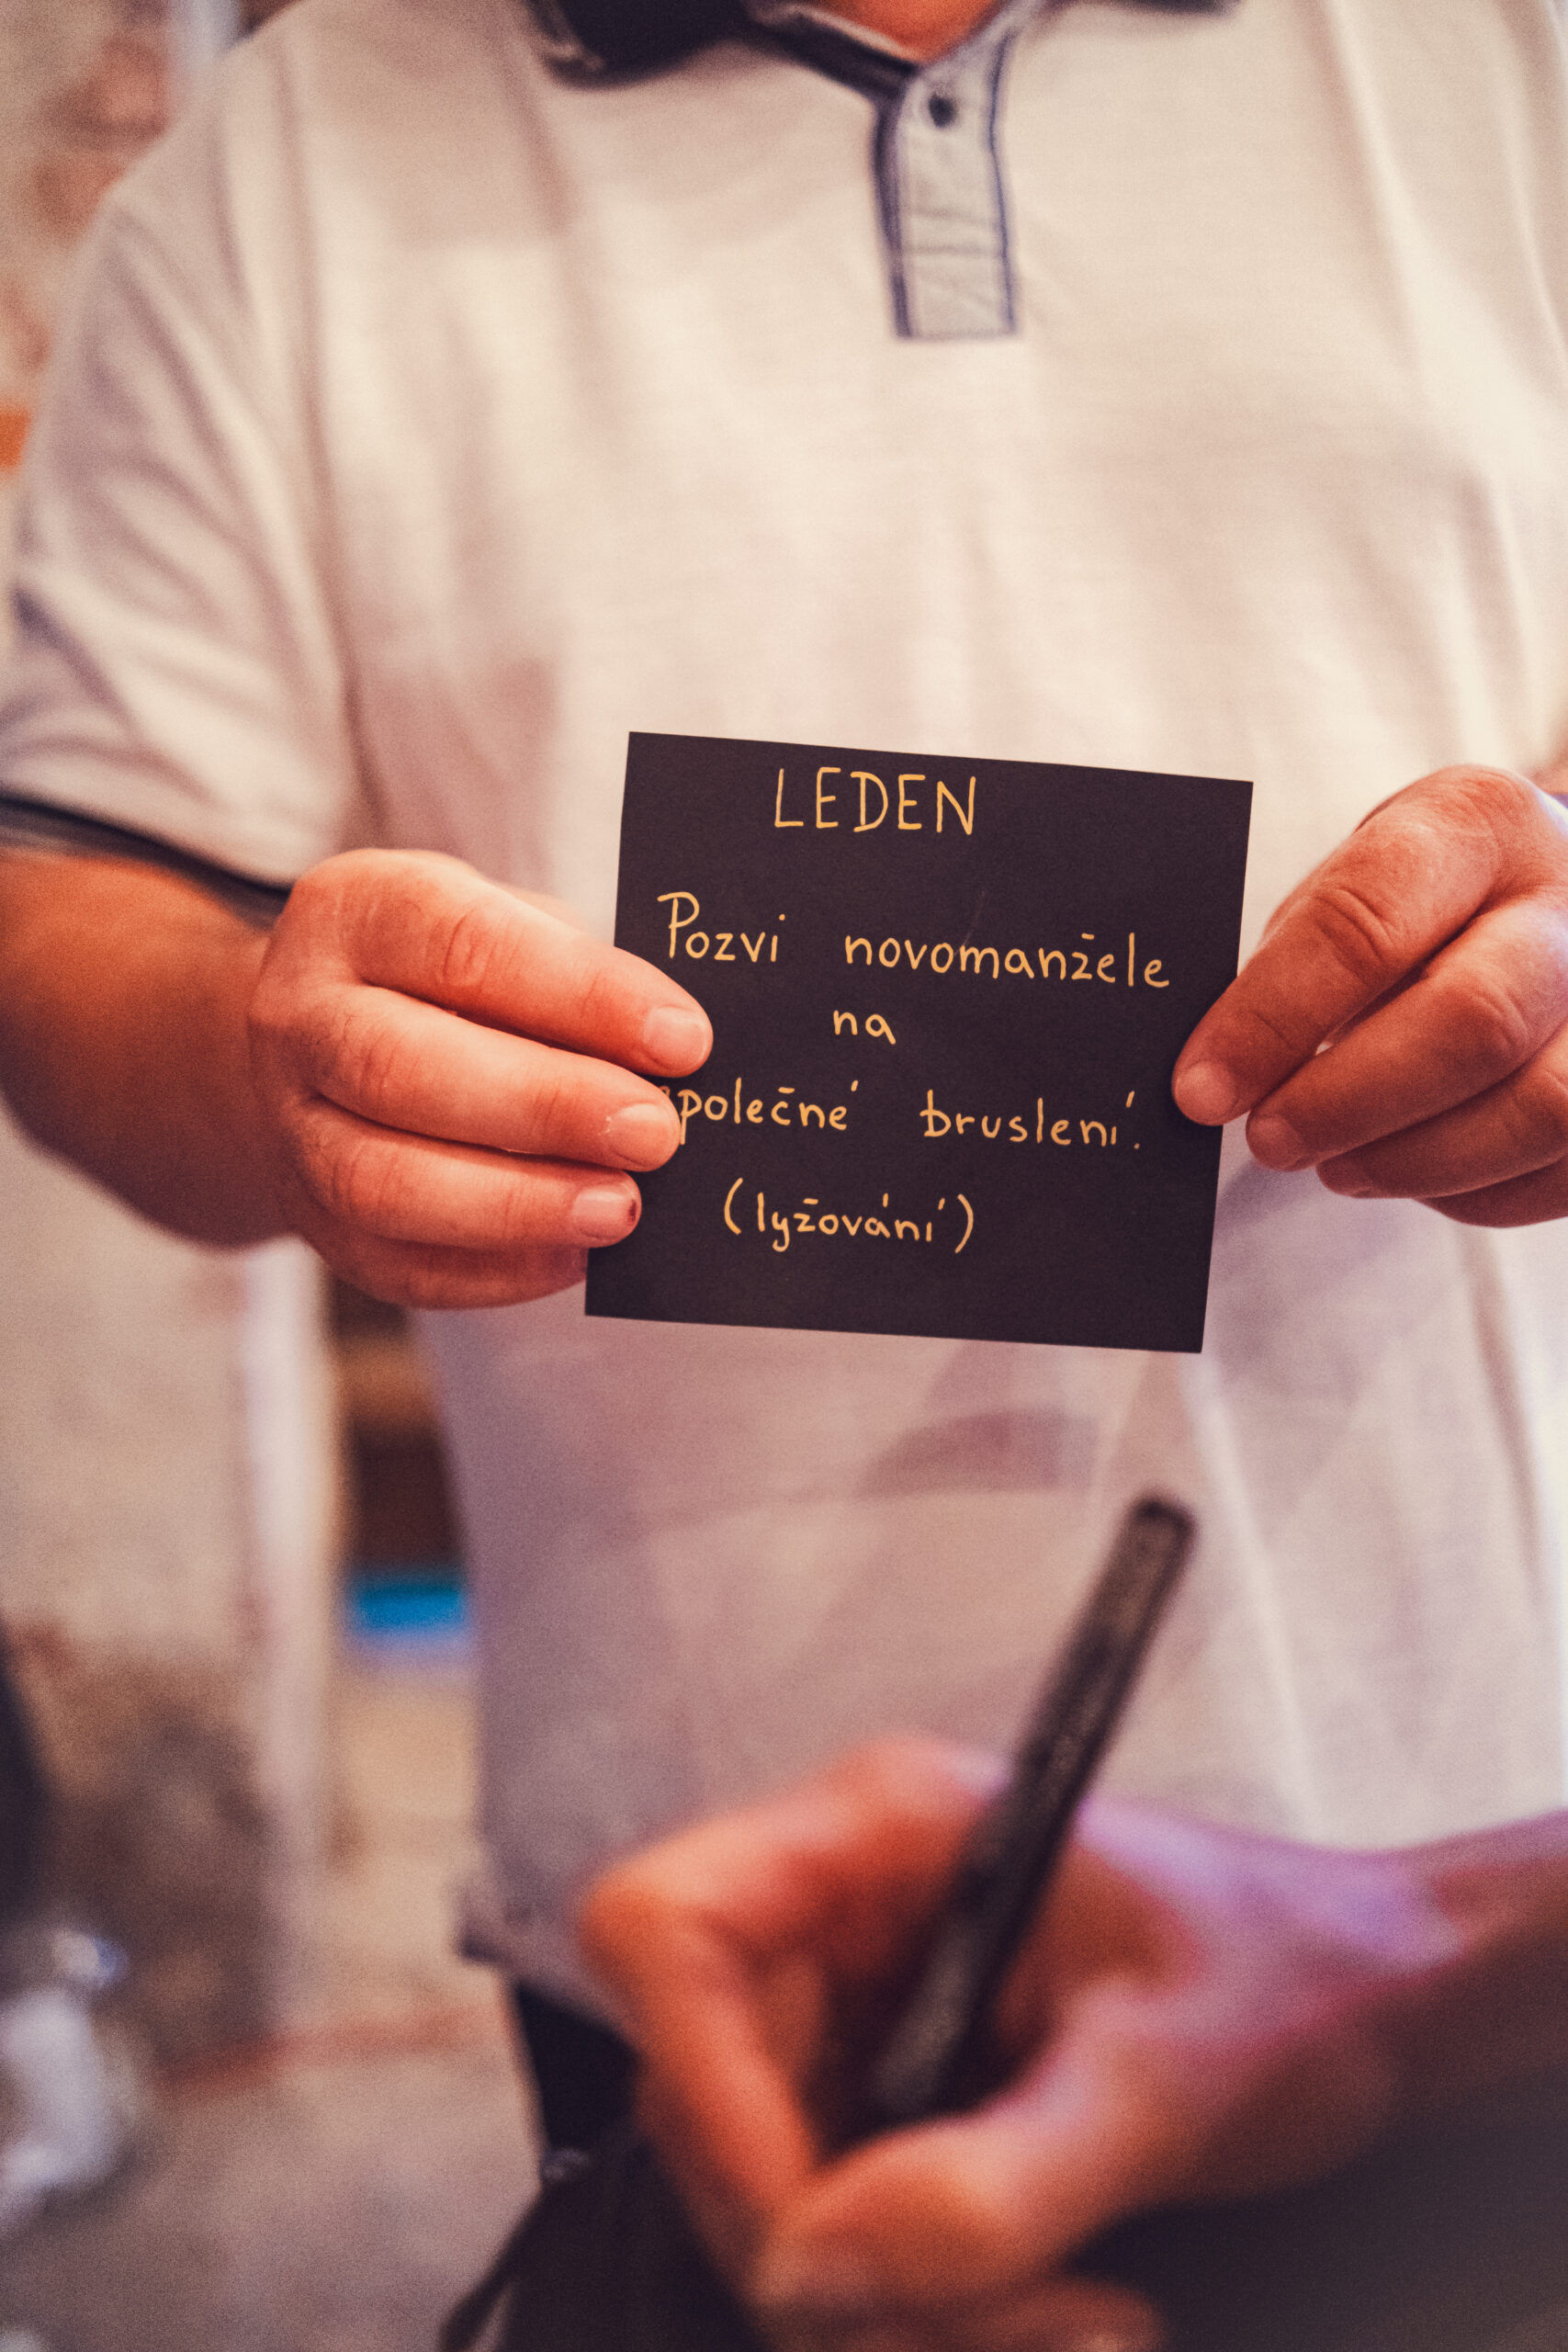 LEDEN
Pozvi novomanžele
na
společné bruslení.
(lyžování)